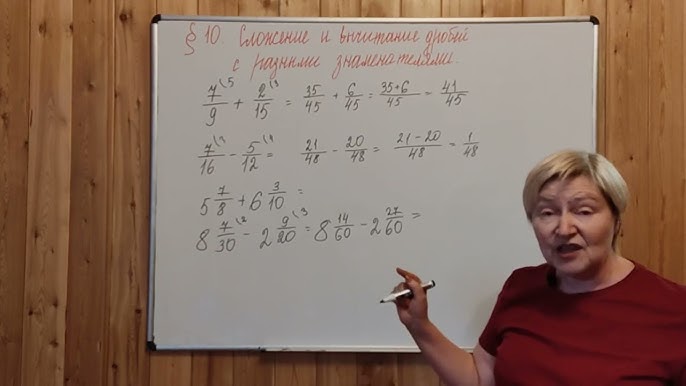 § 10. Сложение и вычитание дробей
с разными знаменателями.
7/9 \5 + 2/15 \3 = 35/45 + 6/45 = (35+6)/45 = 41/45
7/16 \3 - 5/12 \4 = 21/48 - 20/48 = (21-20)/48 = 1/48
5 7/8 + 6 3/10 =
8 7/30 \2 - 2 9/20 \3 = 8 14/60 - 2 27/60 =